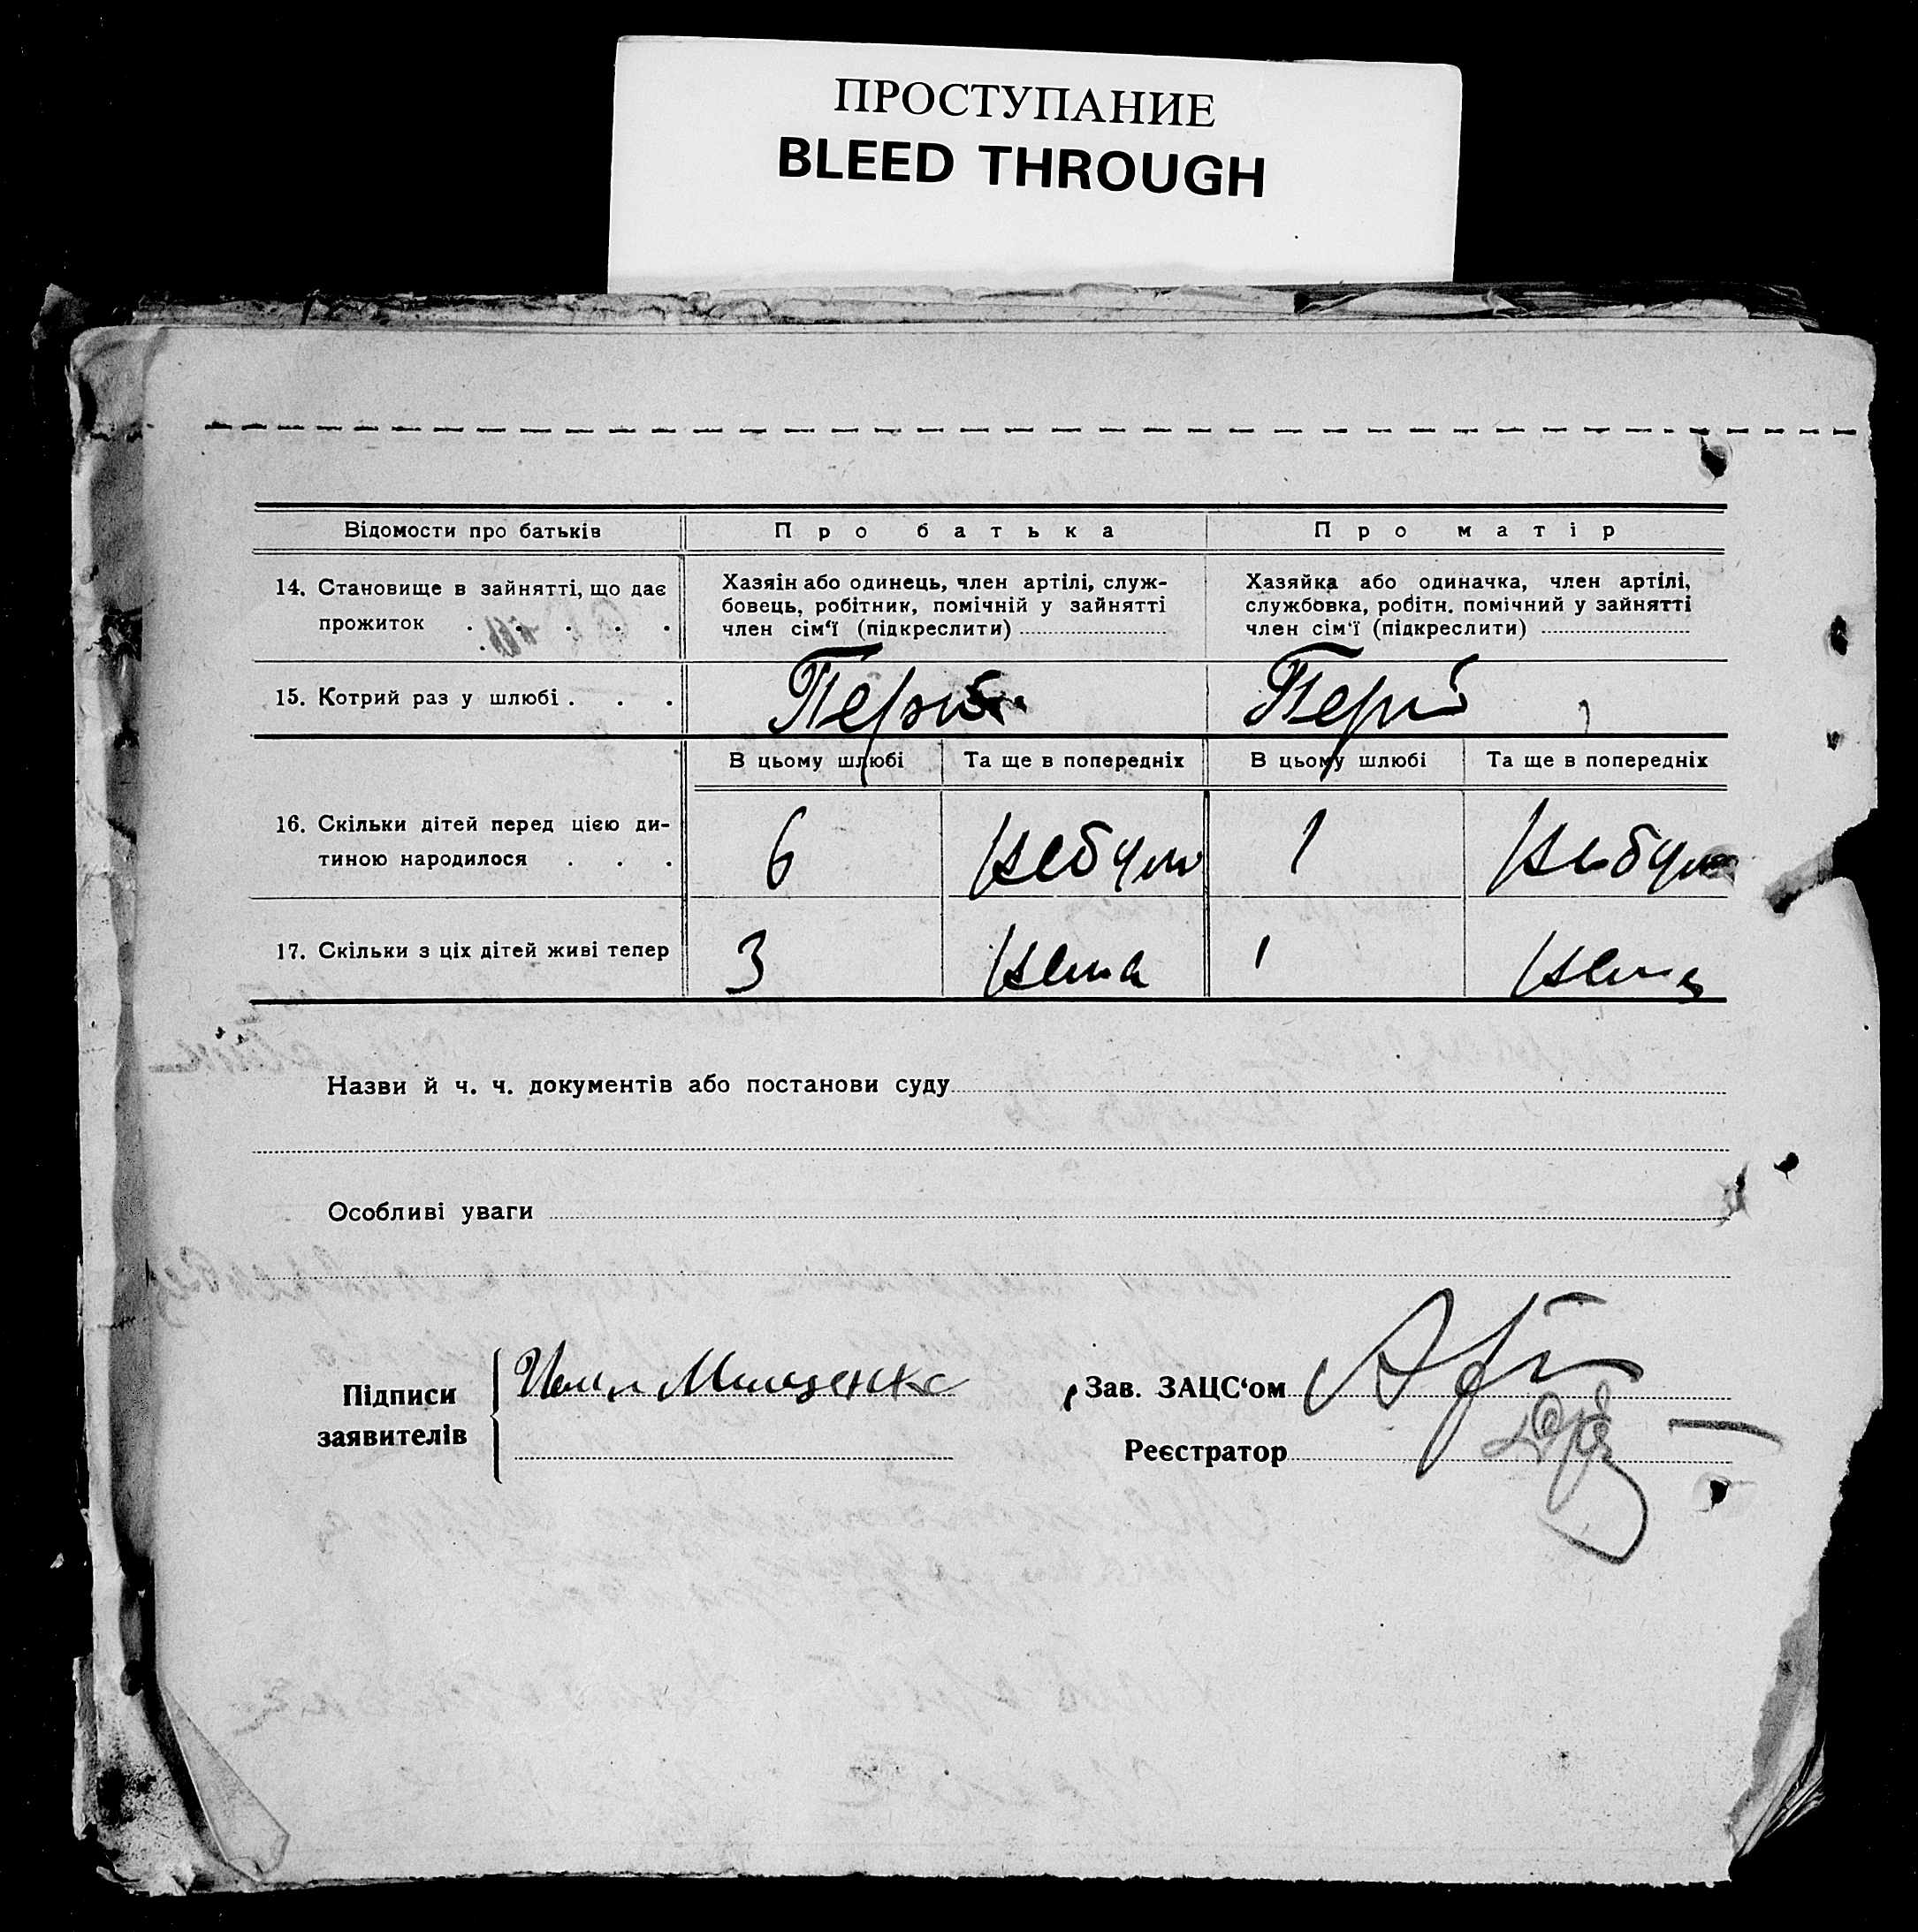 ПРОСТУПАНИЕ
BLEED THROUGH
Відомости про батьків
Про батька
Про матір
14. Становище в зайнятті, що дає
прожиток . . . . .
Хазяін або одинець, член артілі, служ-
бовець, робітник, помічній у зайнятті
член сім'ї (підкреслити)
Хазяйка або одиначка, член артілі,
службовка, робітн. помічний у зайнятті
член сім'ї (підкреслити)
15. Котрий раз у шлюбі . . .
В цьому шлюбі
Та ще в попередніх
В цьому шлюбі
Та ще в попередніх
16. Скільки дітей перед цією ди-
тиною народилося . . .
6
Небуло
1
Небуло
17. Скільки з ціх дітей живі тепер
3
Нема
1
Нема
Назви й ч. ч. документів або постанови суду
Особливі уваги
Підписи
заявителів
Мищенко
Зав. ЗАЦС'ом
Реєстратор